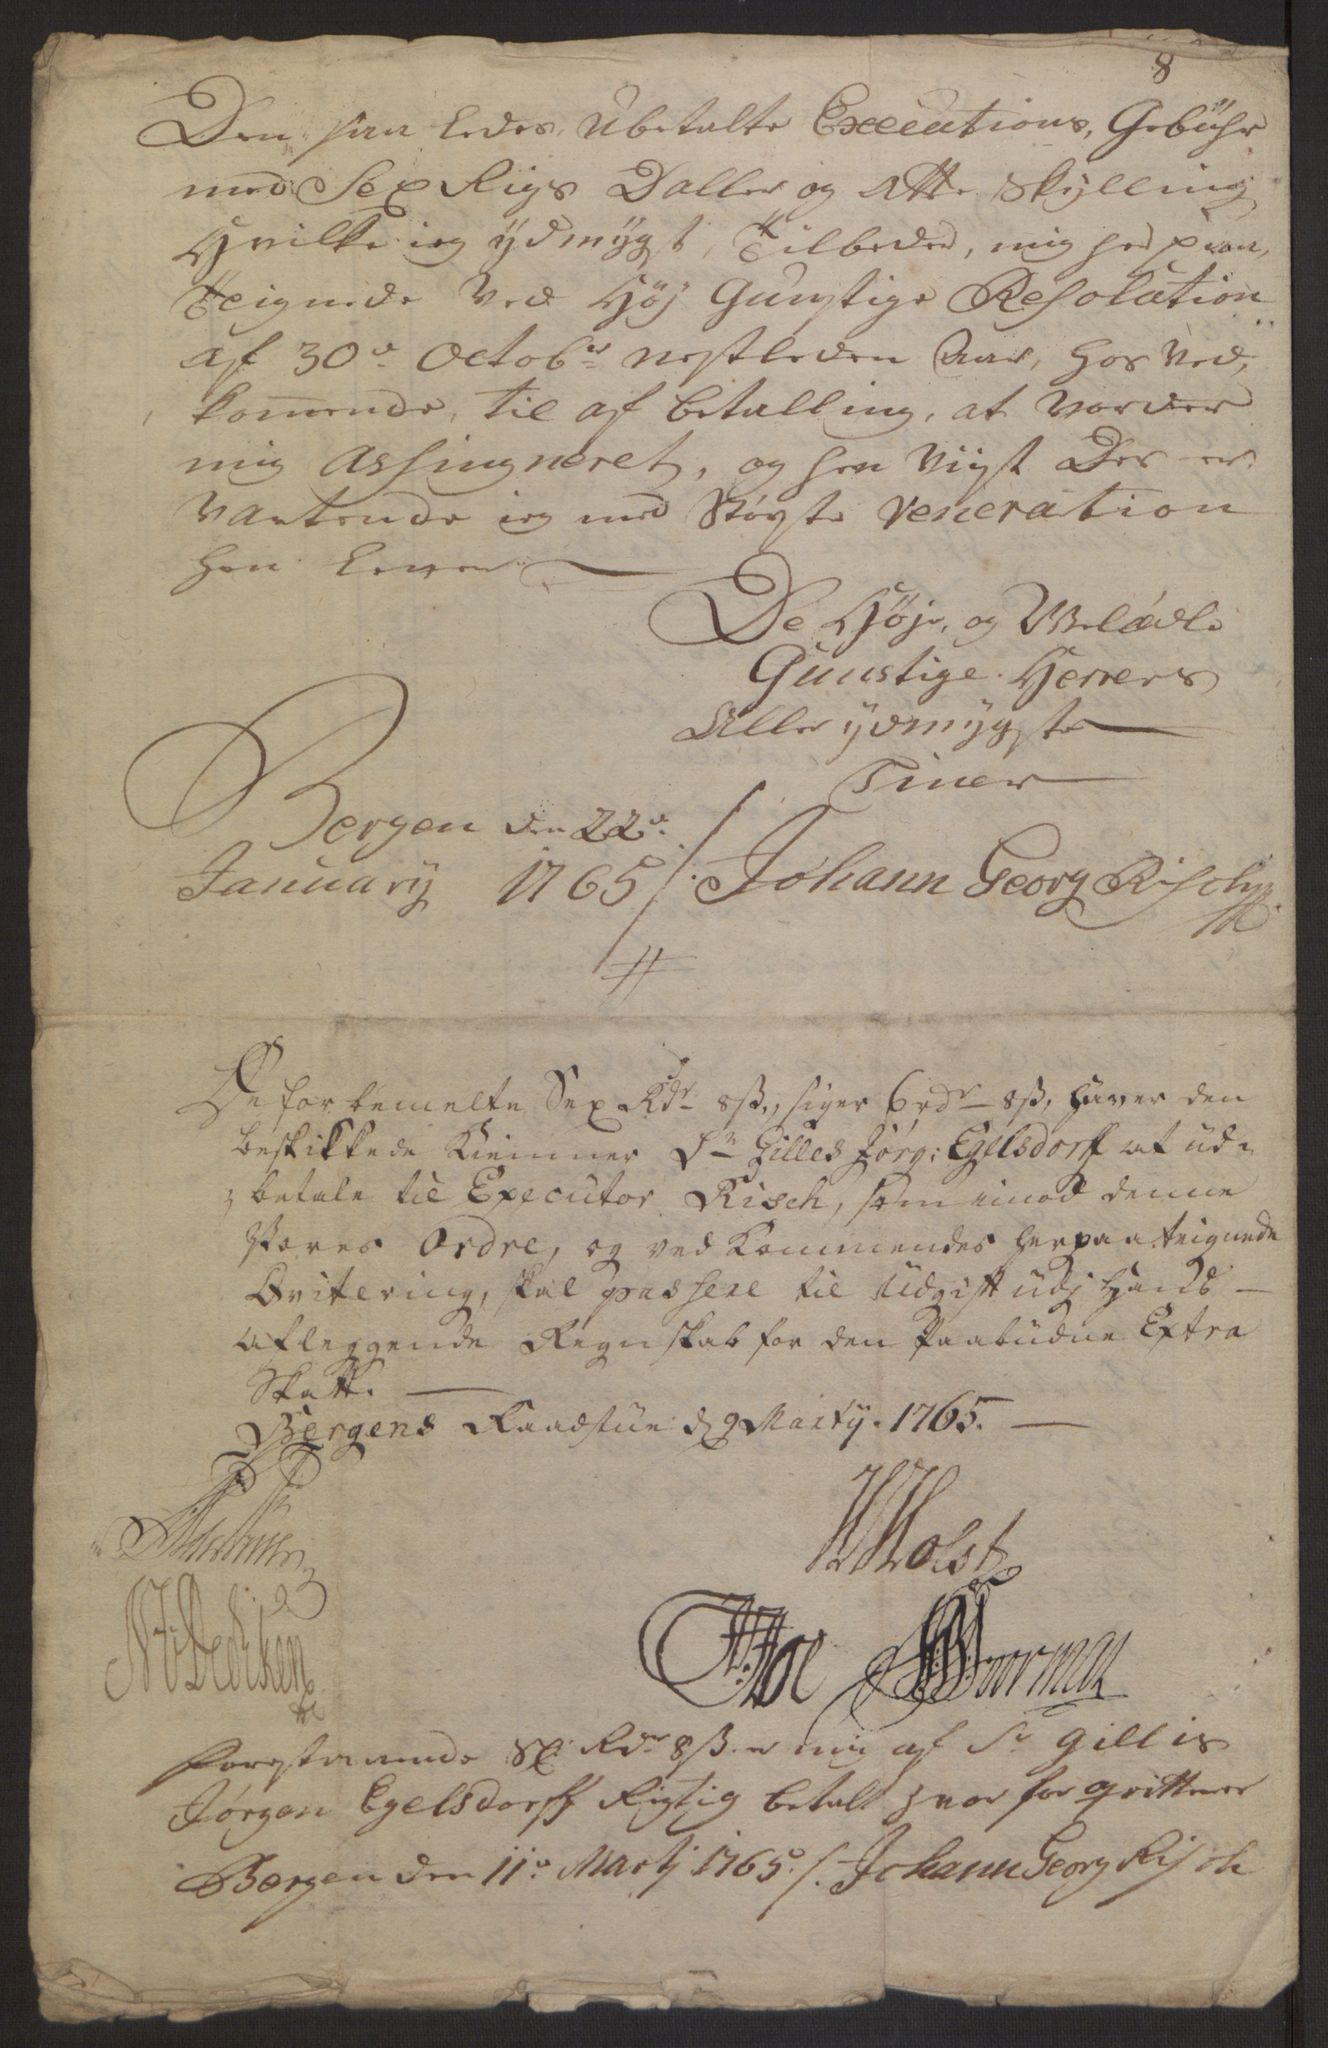 8
Den saa ledes Ubetalte Executions, Gebühr
med Sex Rigs Daller og Atte Skylling
Hvilke ieg ydmygst Tilbeder, mig her paa,
Teignede Ved Høj Gunstige Resolution
af 30de Octobr nestleden Aar, hos Ved,
kommende, til af betalling, at vorder
mig Assingneret, og hen Viist Der er
vartende ieg med Største Veneration
hen Lever
De Høje, og Welædle
Gunstige Herrers
Aller ydmygste
Tiner
Bergen den 22de
January 1765 /: Johann Georg Risch
De forbemelte Sex Rdr 8ß, siger 6 rdr 8ß, haver den
beskikkede Kiemner Sr Gilles Jørg: Egelsdorff at ud-
betale til Executor Risch, som imod denne
Vores Ordre, og ved Kommendes herpaateignede
Qvitering, skal passere til Udgift udj Hands
aflæggende Regnskab for den Paabudne Extra
Skatt.
Bergens Raadstue d 9 Marty. 1765.
Holst
N Dediken
Foorman
Forestaaende Sex Rdr 8ß er mig af Sr Gillis
Jørgen Egelsdorff Rigtig betalt hvor for qvitterer
Bergen den 11te Martj 1765 /. Johann Georg Risch